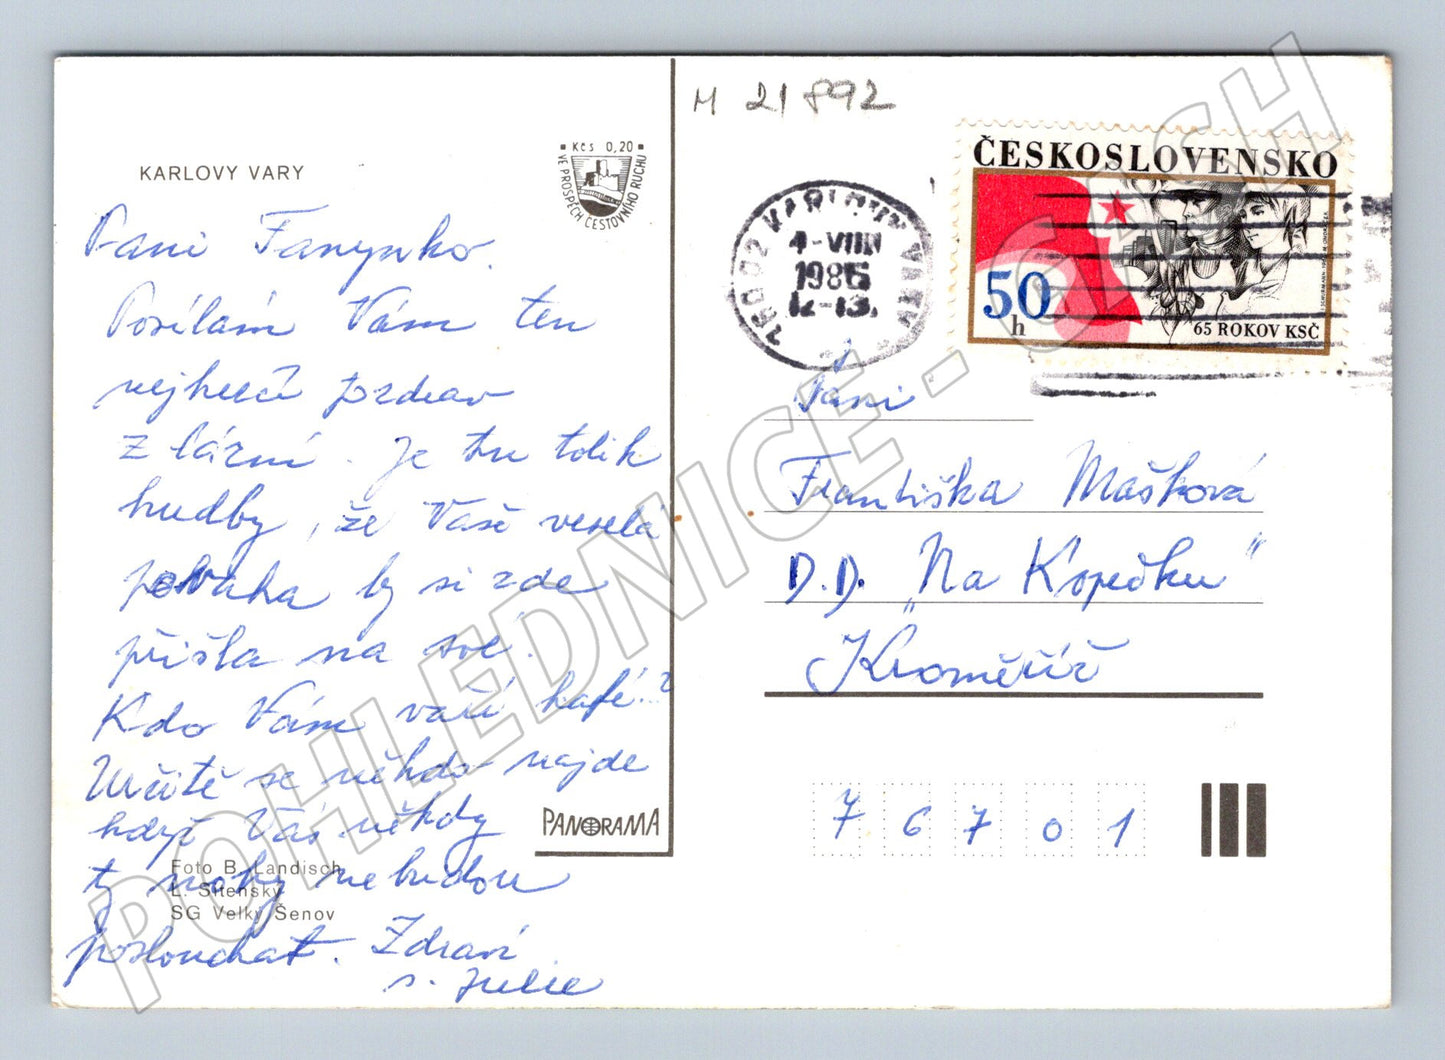 KARLOVY VARY
Kčs 0,20
VE PROSPĚCH CESTOVNÍHO RUCHU
Paní Fanynko.
Posílám Vám ten
nejhezčí pozdrav
z lázní. Je tu tolik
hudby, že Vaše veselá
povaha by si zde
přišla na své.
Kdo Vám vaří kafé..?
Určitě se někdo najde
když Vás někdy
ty nohy nebudou
poslouchat. Zdraví
s. Julie
Foto B. Landisch,
L. Sitenský
SG Velký Šenov
PANORAMA
M 21 892
360 02 KARLOVY VARY
4-VIII
1986
12-13.
ČESKOSLOVENSKO
50
h
65 ROKOV KSČ
Paní
Františka Mašková
D.D. „Na Kopečku"
Kroměříž
7 6 7 0 1
POHLEDNICE - CASH